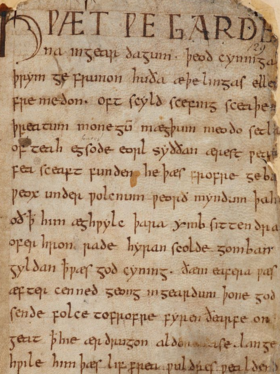 HǷÆT ǷE GARDE
na ingear dagum. þeod cyninga
þrym ge frunon huða æþelingas elle
fremedon. oft scyld scefing sceaþe
þreatum monegū mægþum meodo setl
of teah egsode eorl syððan ærest ƿear
fea sceaft funden he þæs frofre geba
ƿeox under ƿolcnum ƿeorð myndum þah
oð ꝥ him æghƿylc þara ymb sittendra
ofer hron rade hyran scolde gomban
gyldan ꝥ ƿæs god cyning. ðæm eafera ƿæs
æfter cenned geong ingeardum þone god
sende folce tofrofre fyren ðearfe on
geat ꝥ hie ær drugon aldor ase. lange
hƿile him þæs lif frea ƿuldres ƿealde